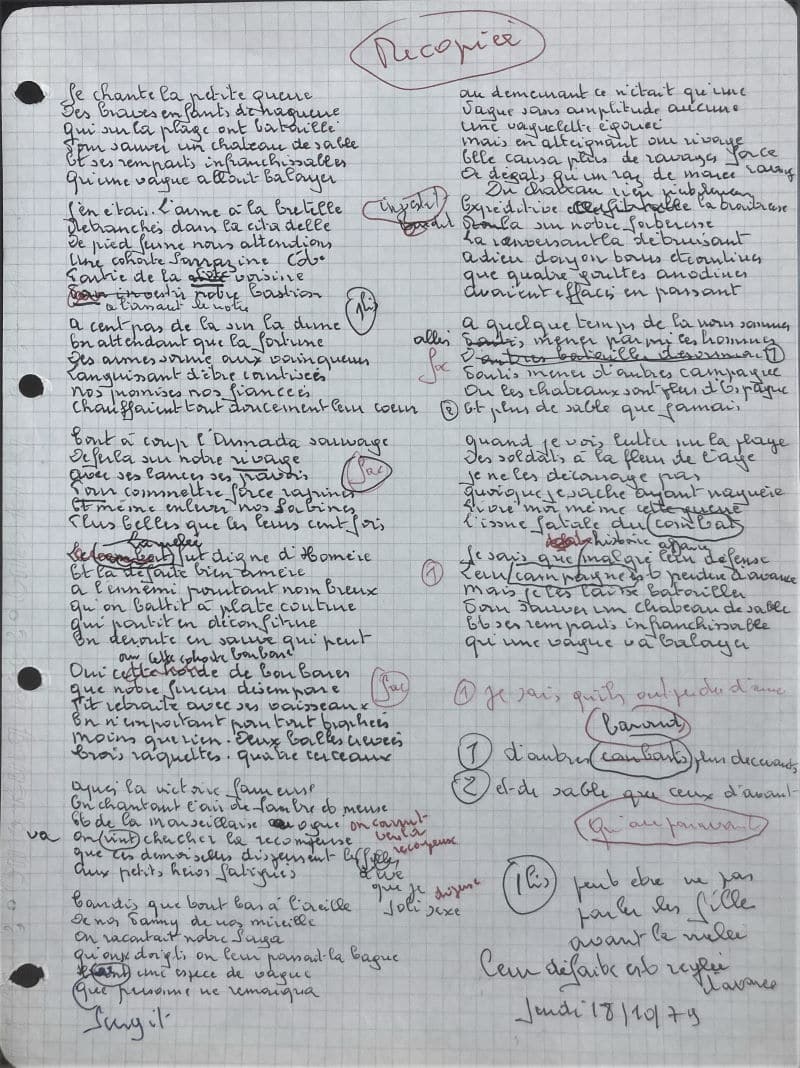 Recopiée
Je chante la petite guerre
Des braves enfants de naguère
Qui sur la plage ont bataillé
Pour sauver un chateau de sable
Et ses remparts infranchissables
Qu'une vague allait balayer
J'en étais. L'arme à la bretelle
Retranchés dans la citadelle
De pied ferme nous attendions
Une cohorte sarrazine
Sortie de la voisine
notre bastion
à l'assaut de notre
A cent pas de là sur la dune
En attendant que la fortune
Des armes sourie aux vainqueurs
Languissant d'être courtisées
nos promises nos fiancées
Chauffaient tout doucement leur coeur
Tout à coup l'Armada sauvage
Déferla sur notre rivage
avec ses lances ses pavois
Pour commettre force rapines
Et même enlever nos sabines
Plus belles que les leurs cent fois
La mêlée
Le combat fut digne d'Homère
Et la défaite bien amère
A l'ennemi pourtant nombreux
Qu'on battit à plate couture
qui partit en déconfiture
En déroute en sauve qui peut
Oui cette horde de barbares
que notre fureur désempare
Fit retraite avec ses vaisseaux
En n'emportant pour tout trophées
moins que rien. Deux balles crevées
trois raquettes. quatre cerceaux
après la victoire fameuse
En chantant l'air de Sambre et meuse
Et de la marseillaise ogué
va on vint chercher la récompense
que ces demoiselles dispensent
aux petits héros fatigués
que je
joli sexe
tandis que tout bas à l'oreille
De nos Fanny de nos mireille
On racontait notre saga
qu'aux doigts on leur passait la bague
une espèce de vague
que personne ne remarqua
Surgit
au demeurant ce n'était qu'une
Vague sans amplitude aucune
Une vaguelette égarée
mais en atteignant au rivage
Elle causa plus de ravages force
et dégats, qu'un raz de marée
Du chateau rien
Expéditive la traitresse
Investit
Fonça sur notre forteresse
La renversant la détruisant
adieu donjon tours et courtines
que quatre gouttes anodines
avaient effacés en passant
A quelque temps de là nous sommes
allés mener parmi les hommes
D'autres batailles 1
Partis mener d'autres campagnes
Où les chateaux sont plus d'Espagne
2 Et plus de sable que jamais
quand je vois lutter sur la plage
Des soldats à la fleur de l'age
Je ne les décourage pas
quoique je sache ayant naguère
Livré moi même cette guerre
L'issue fatale du combat
Je sais que malgré leur défense
1 Leur campagne est perdue d'avance
mais je les laisse batailler
Pour sauver un chateau de sable
Et ses remparts infranchissables
qu'une vague va balayer
1 Je sais, qu'ils ont perdu d'avance
1 d'autres combats plus décevants
2 et de sable que ceux d'avant
Qu'auparavant
peut etre ne pas
parler des fille
avant la mêlée
Leur défaite est réglée
d'avance
Jeudi 18/10/79